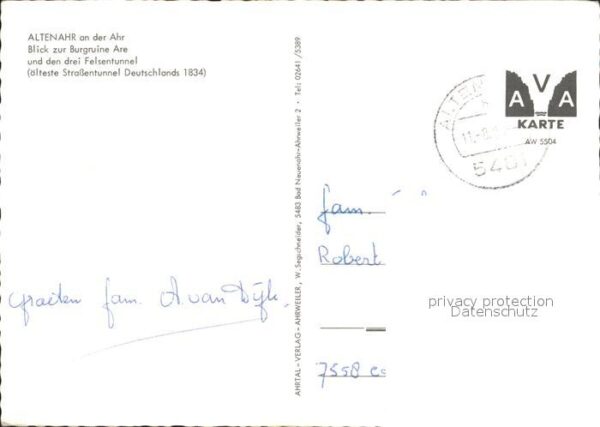 ALTENAHR an der Ahr
Blick zur Burgruine Are
und den drei Felsentunnel
(älteste Straßentunnel Deutschlands 1834)
groeten fam. A. van Dijk.
AHRTAL - VERLAG - AHRWEILER, W. Segschneider, 5483 Bad Neuenahr-Ahrweiler 2 • Tel: 02641/5389
AVA
KARTE
AW 5504
5481
fam.
Robert
privacy protection
Datenschutz
7558